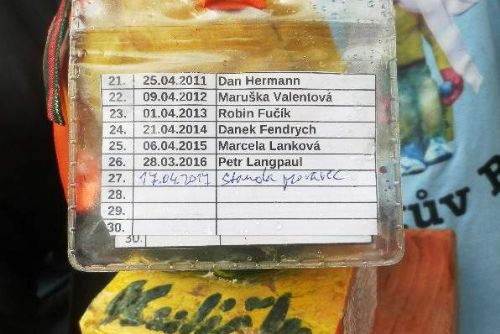 21. 25.04.2011 Dan Hermann
22. 09.04.2012 Maruška Valentová
23. 01.04.2013 Robin Fučík
24. 21.04.2014 Danek Fendrych
25. 06.04.2015 Marcela Lanková
26. 28.03.2016 Petr Langpaul
27. 17.04.2017 Standa
28.
29.
30.
30.
ův